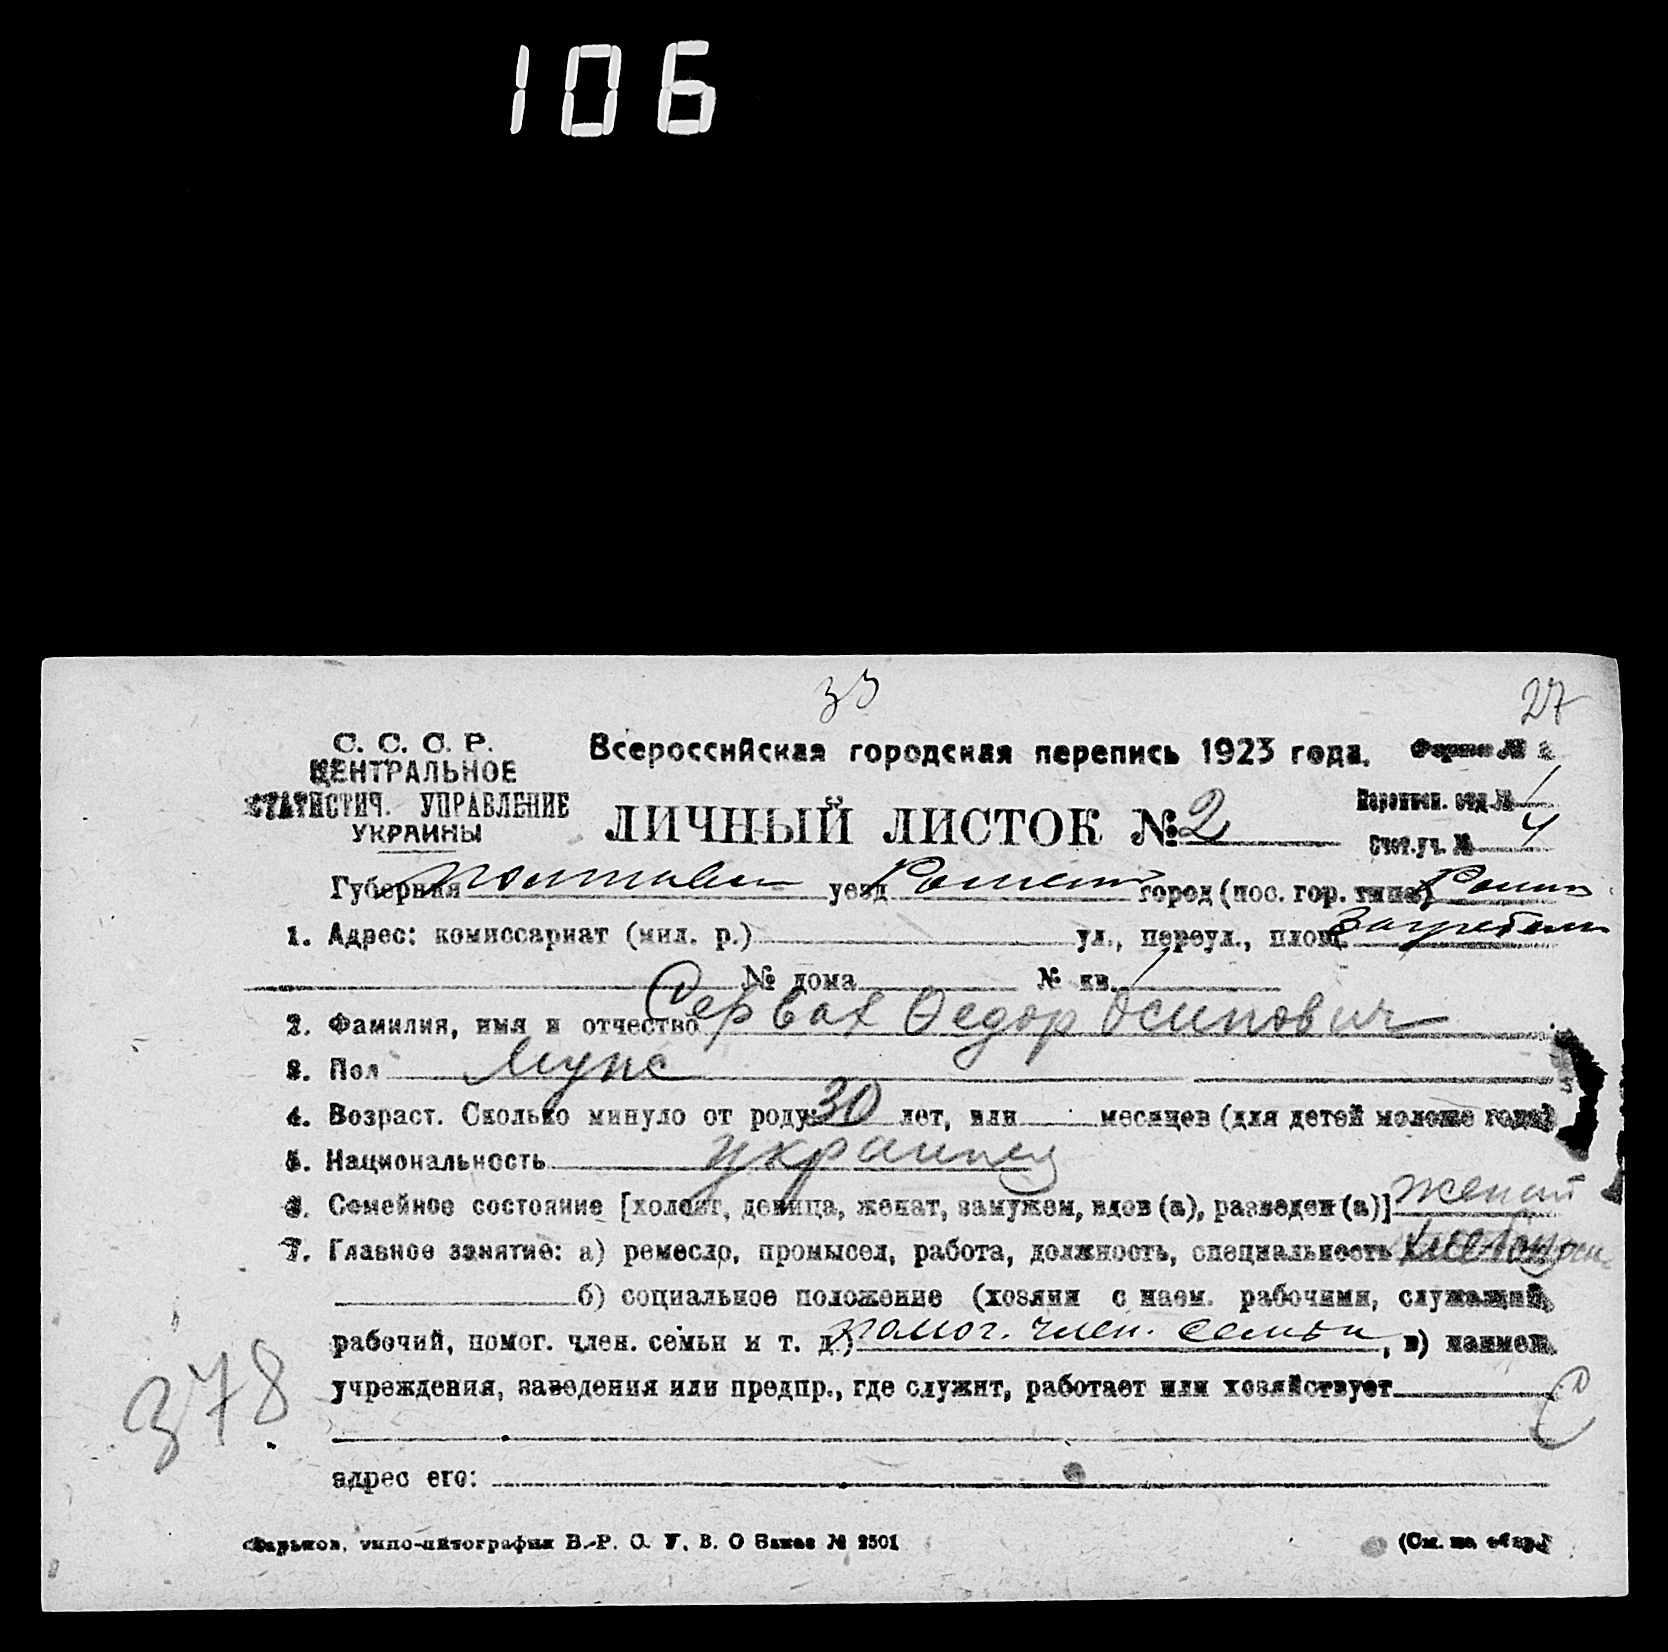 106
33
27
С. С. С. Р.
ЦЕНТРАЛЬНОЕ
СТАТИСТИЧ. УПРАВЛЕНИЕ
УКРАИНЫ
Всероссийская городская перепись 1923 года.
Форма №
ЛИЧНЫЙ ЛИСТОК № 2
Переписн. отд. № 1
Счет. уч. № 4
Губерния Полтавск уезд Роменск город (пос. гор. типа) Ромны
1. Адрес: комиссариат (мил. р.) ул., переул., площ.
№ дома № кв.
2. Фамилия, имя и отчество Сервах Федор Осипович
3. Пол Мужс
4. Возраст. Сколько минуло от роду: 30 лет, или месяцев (для детей моложе года)
5. Национальность украинец
6. Семейное состояние [холост, девица, женат, замужем, вдов (а), разведен (а)] женат
7. Главное занятие: а) ремесло, промысел, работа, должность, специальность
б) социальное положение (хозяин с наем. рабочими, служащий,
рабочий, помог. член. семьи и т. д.) помог. член. семьи, в) наимен.
учреждения, заведения или предпр., где служит, работает или хозяйствует
378
С
адрес его:
Харьков, типо-литография В.-Р. С. У. В. О Заказ № 2501
(См. на обор.)